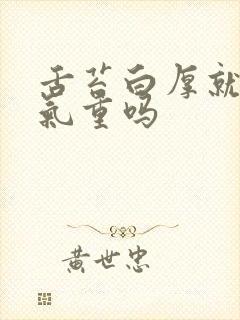 舌苔白厚就
氣重吗
黄世忠